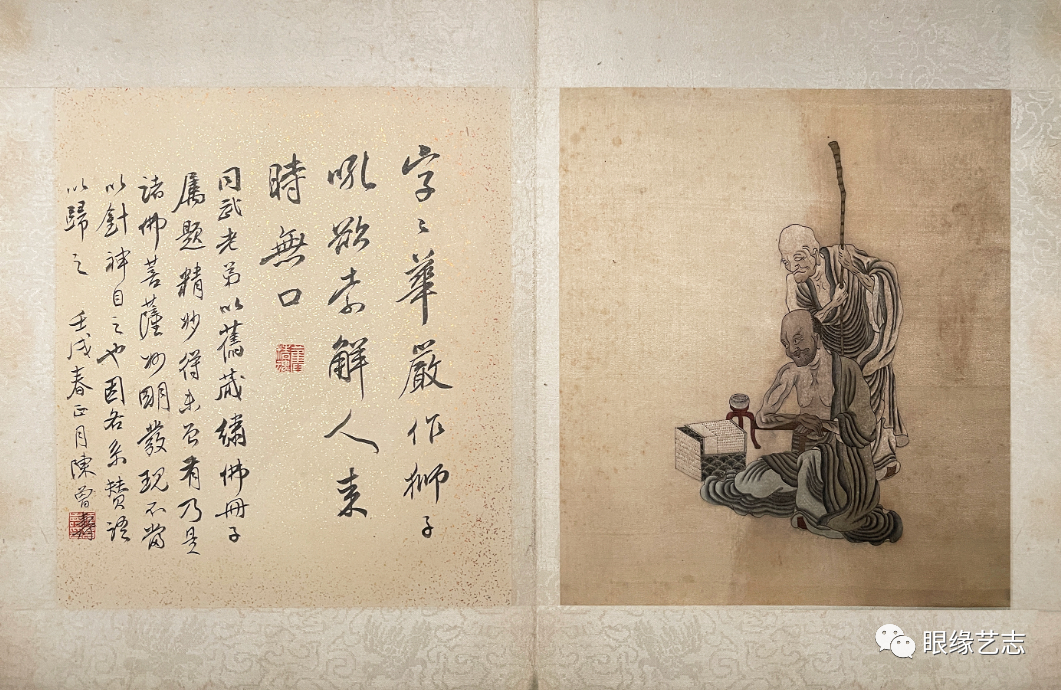 字〻華嚴作獅子
吼欲索解人來
時無口
同武老弟以舊藏繡佛冊子
屬題精妙得未曾有乃是
諸佛菩薩妙明發現不當
以針神目之也因各系贊語
以歸之 壬戌春正月陳曾壽
眼缘艺志